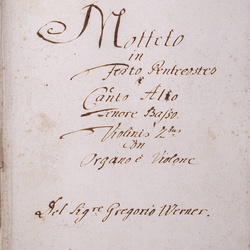 Motteto
in
Festo Pentecostes
a
Canto Alto
Tenore Basso.
Violini 2bus
con
Organo è Violone
Del Sigre Gregorio Werner.